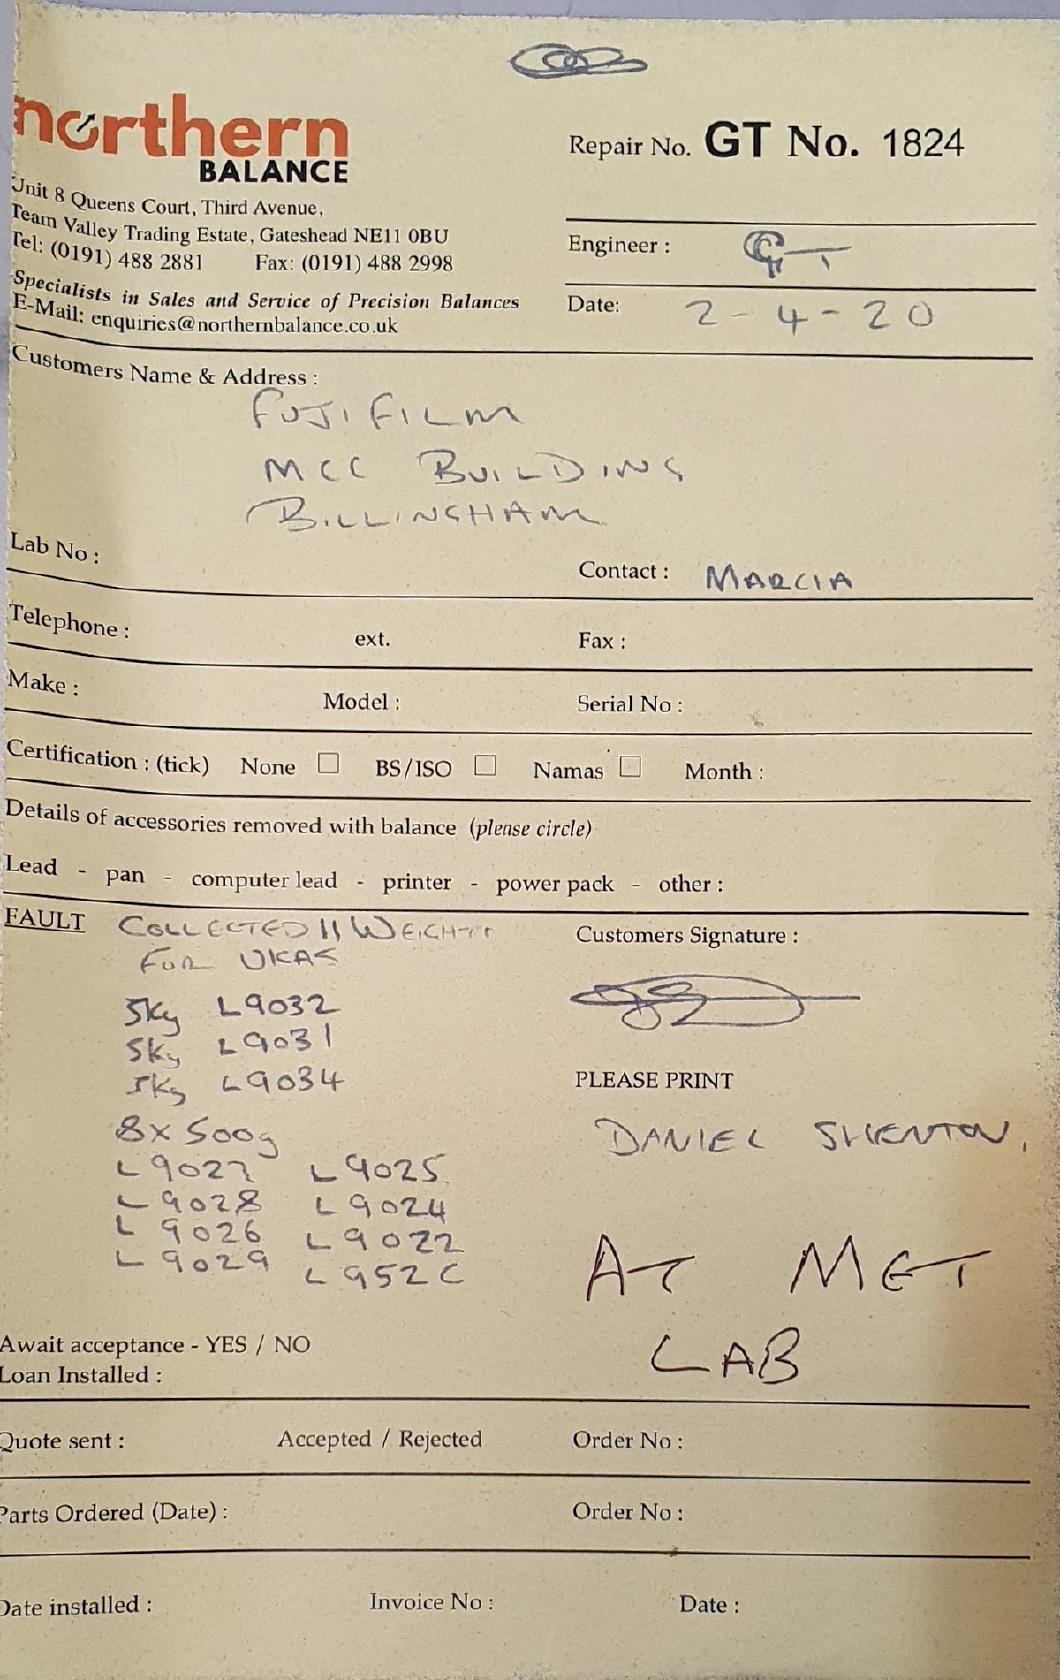 northern
BALANCE
Repair No. GT No. 1824
Unit 8 Queens Court, Third Avenue,
Team Valley Trading Estate, Gateshead NE11 0BU
Tel: (0191) 488 2881 Fax: (0191) 488 2998
Engineer : GT
Specialists in Sales and Service of Precision Balances
E-Mail: enquiries@northernbalance.co.uk
Date: 2-4-20
Customers Name & Address :
FUJIFILM
MCC BUILDING
BILLINGHAM
Lab No :
Contact : MARCIA
Telephone : ext. Fax :
Make : Model : Serial No :
Certification : (tick) None BS/ISO Namas Month :
Details of accessories removed with balance (please circle)
Lead - pan - computer lead - printer - power pack - other :
FAULT COLLECTED 11 WEIGHTS
FOR UKAS
5kg L9032
5kg L9031
5kg L9034
8x500g
L9027 L9025
L9028 L9024
L9026 L9022
L9029 L952C
Customers Signature :
PLEASE PRINT
DANIEL SHENTON.
AT MET
LAB
Await acceptance - YES / NO
Loan Installed :
Quote sent : Accepted / Rejected Order No :
Parts Ordered (Date) : Order No :
Date installed : Invoice No : Date :